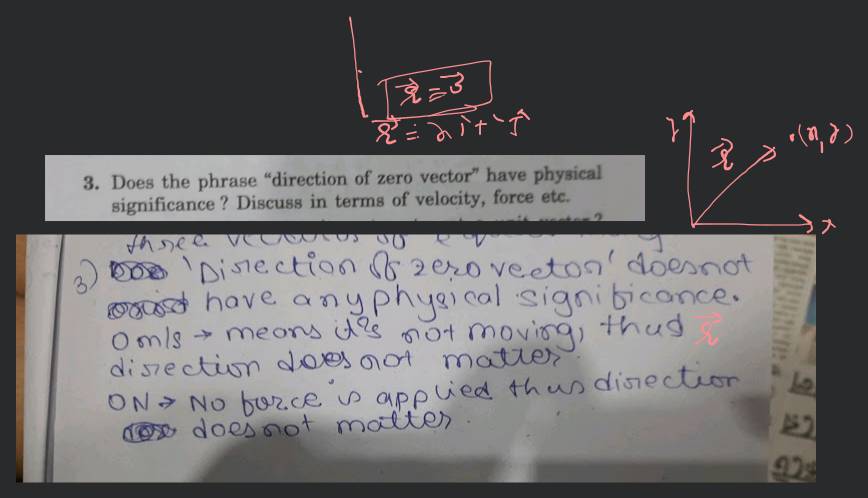 3. Does the phrase "direction of zero vector" have physical
significance ? Discuss in terms of velocity, force etc.
3) 'Direction of zero vector' doesnot
have any physical significance.
0 m/s → means it's not moving, thus
direction does not matter.
0N → No force is applied thus direction
does not matter.